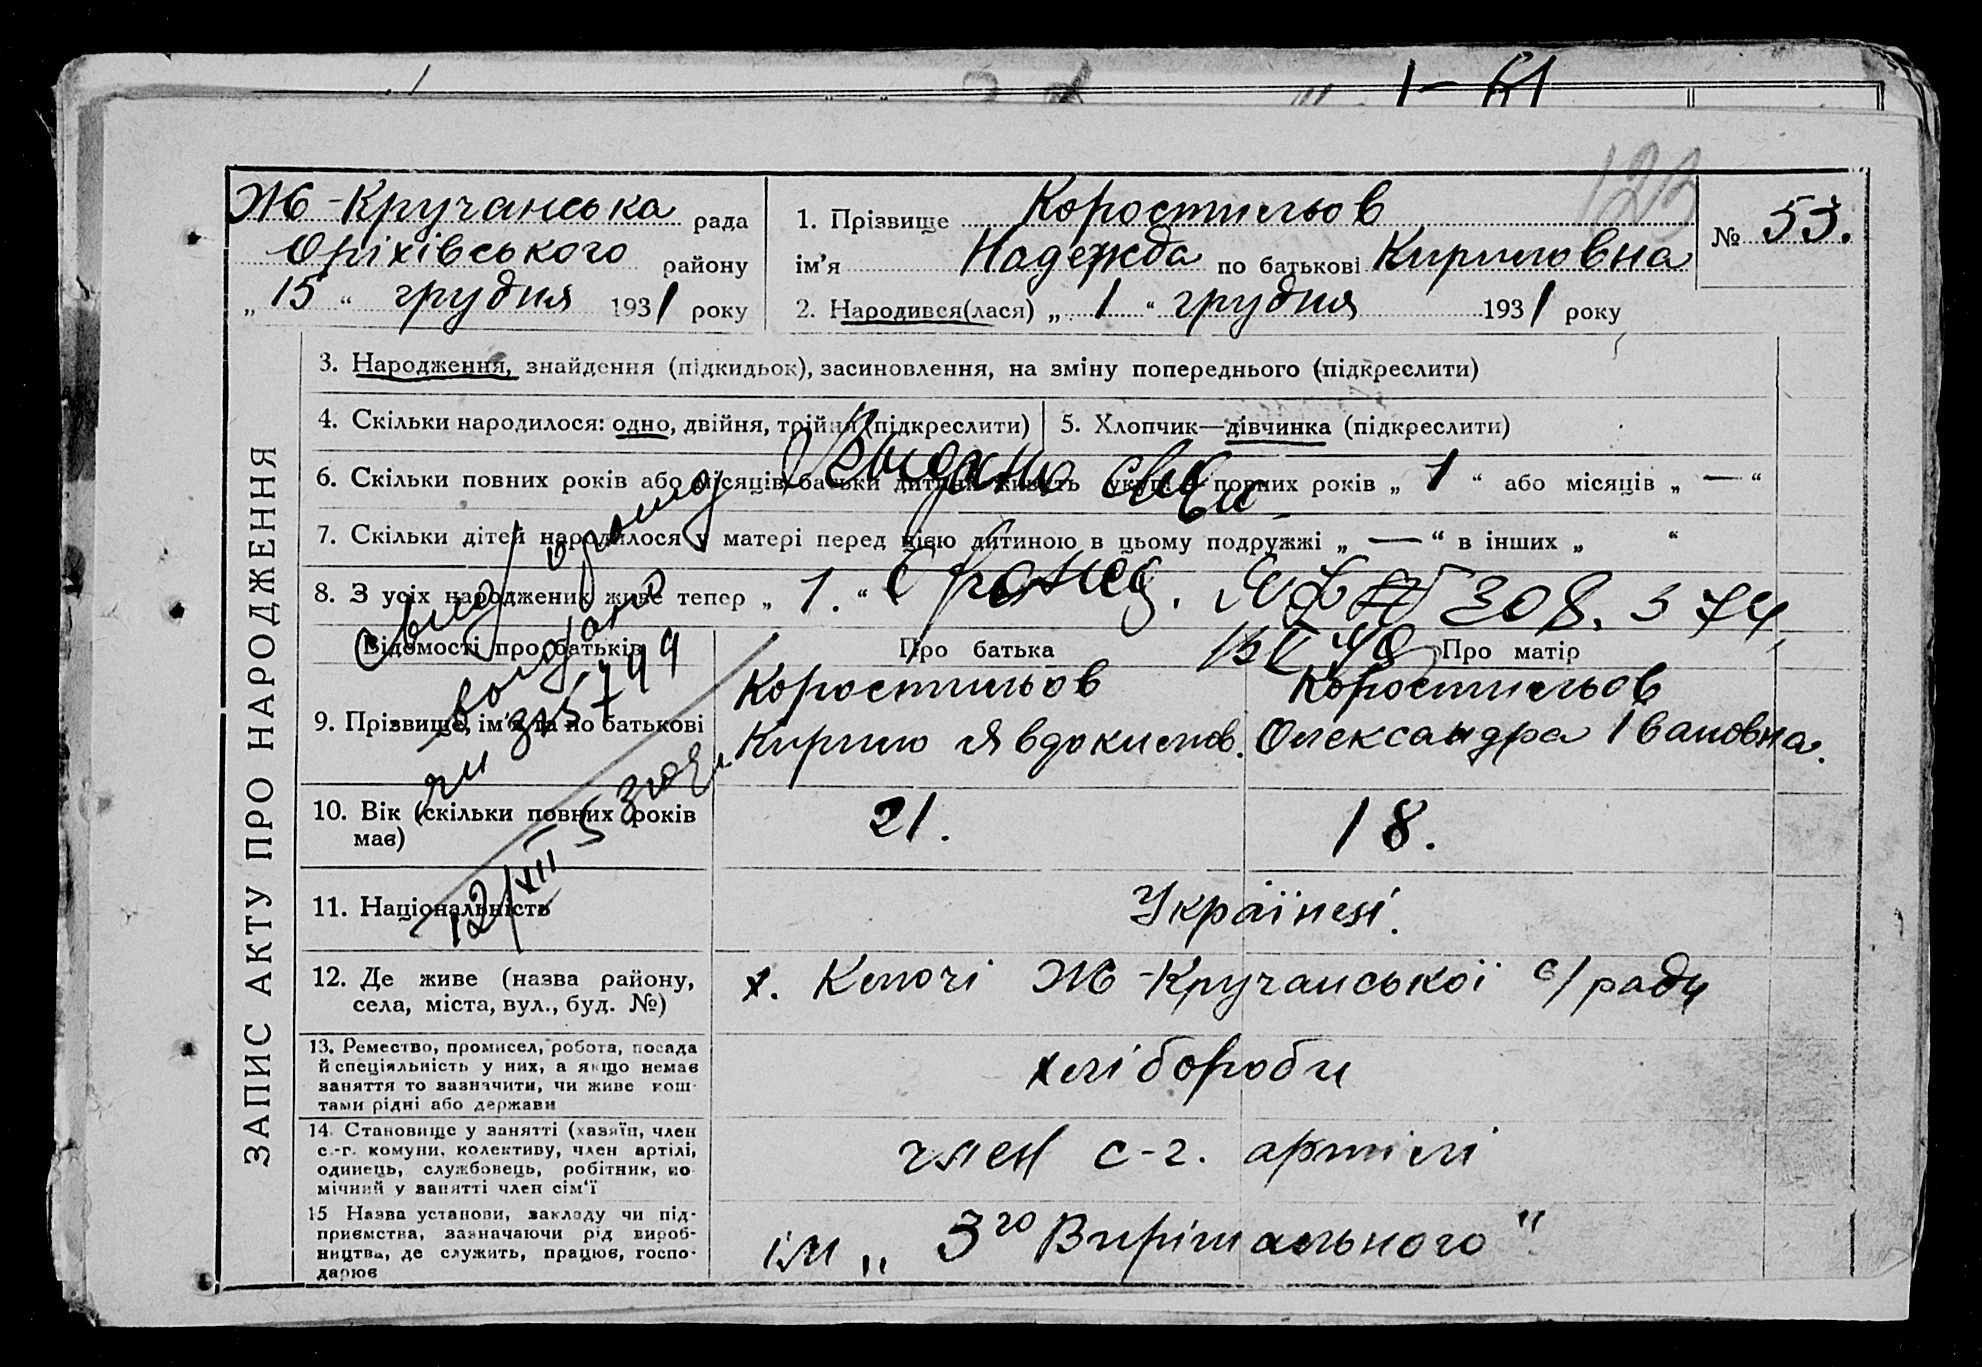 1 – 61
123
Ж-Кручанська рада
Оріхівського району
„ 15 “ грудня 1931 року
1. Прізвище Коростильов
ім’я Надежда по батькові Кириловна
№ 53.
2. Народився(лася) „ 1 “ грудня 1931 року
ЗАПИС АКТУ ПРО НАРОДЖЕННЯ
3. Народження, знайдення (підкидьок), засиновлення, на зміну попереднього (підкреслити)
4. Скільки народилося: одно, двійня, трійня (підкреслити)
5. Хлопчик—дівчинка (підкреслити)
6. Скільки повних років або місяців батьки дитини живуть укупі: повних років „ 1 “ або місяців „ — “
7. Скільки дітей народилося у матері перед цією дитиною в цьому подружжі „ — “ в інших „ “
8. З усіх народжених живе тепер „ 1. “
308. 374
Відомості про батьків
Про батька
Про матір
9. Прізвище, ім’я та по батькові
Коростильов
Кирило Явдокимов.
Коростильов
Олександра Івановна.
10. Вік (скільки повних років має)
21.
18.
11. Національність
Українці.
12. Де живе (назва району,
села, міста, вул., буд. №)
х. Ключі Ж-Кручанської с/ради
13. Ремество, промисел, робота, посада
й спеціяльність у них, а якщо немає
заняття то зазначити, чи живе кош-
тами рідні або держави
хлібороби
14. Становище у занятті (хазяїн, член
с.-г. комуни, колективу, член артілі,
одинець, службовець, робітник, по-
мічний у занятті член сім’ї
член с-г. артілі
15 Назва установи, закладу чи під-
приємства, зазначаючи рід вироб-
ництва, де служить, працює, госпо-
дарює
ім „ 3го Вирішального "
Выдано
12/XII